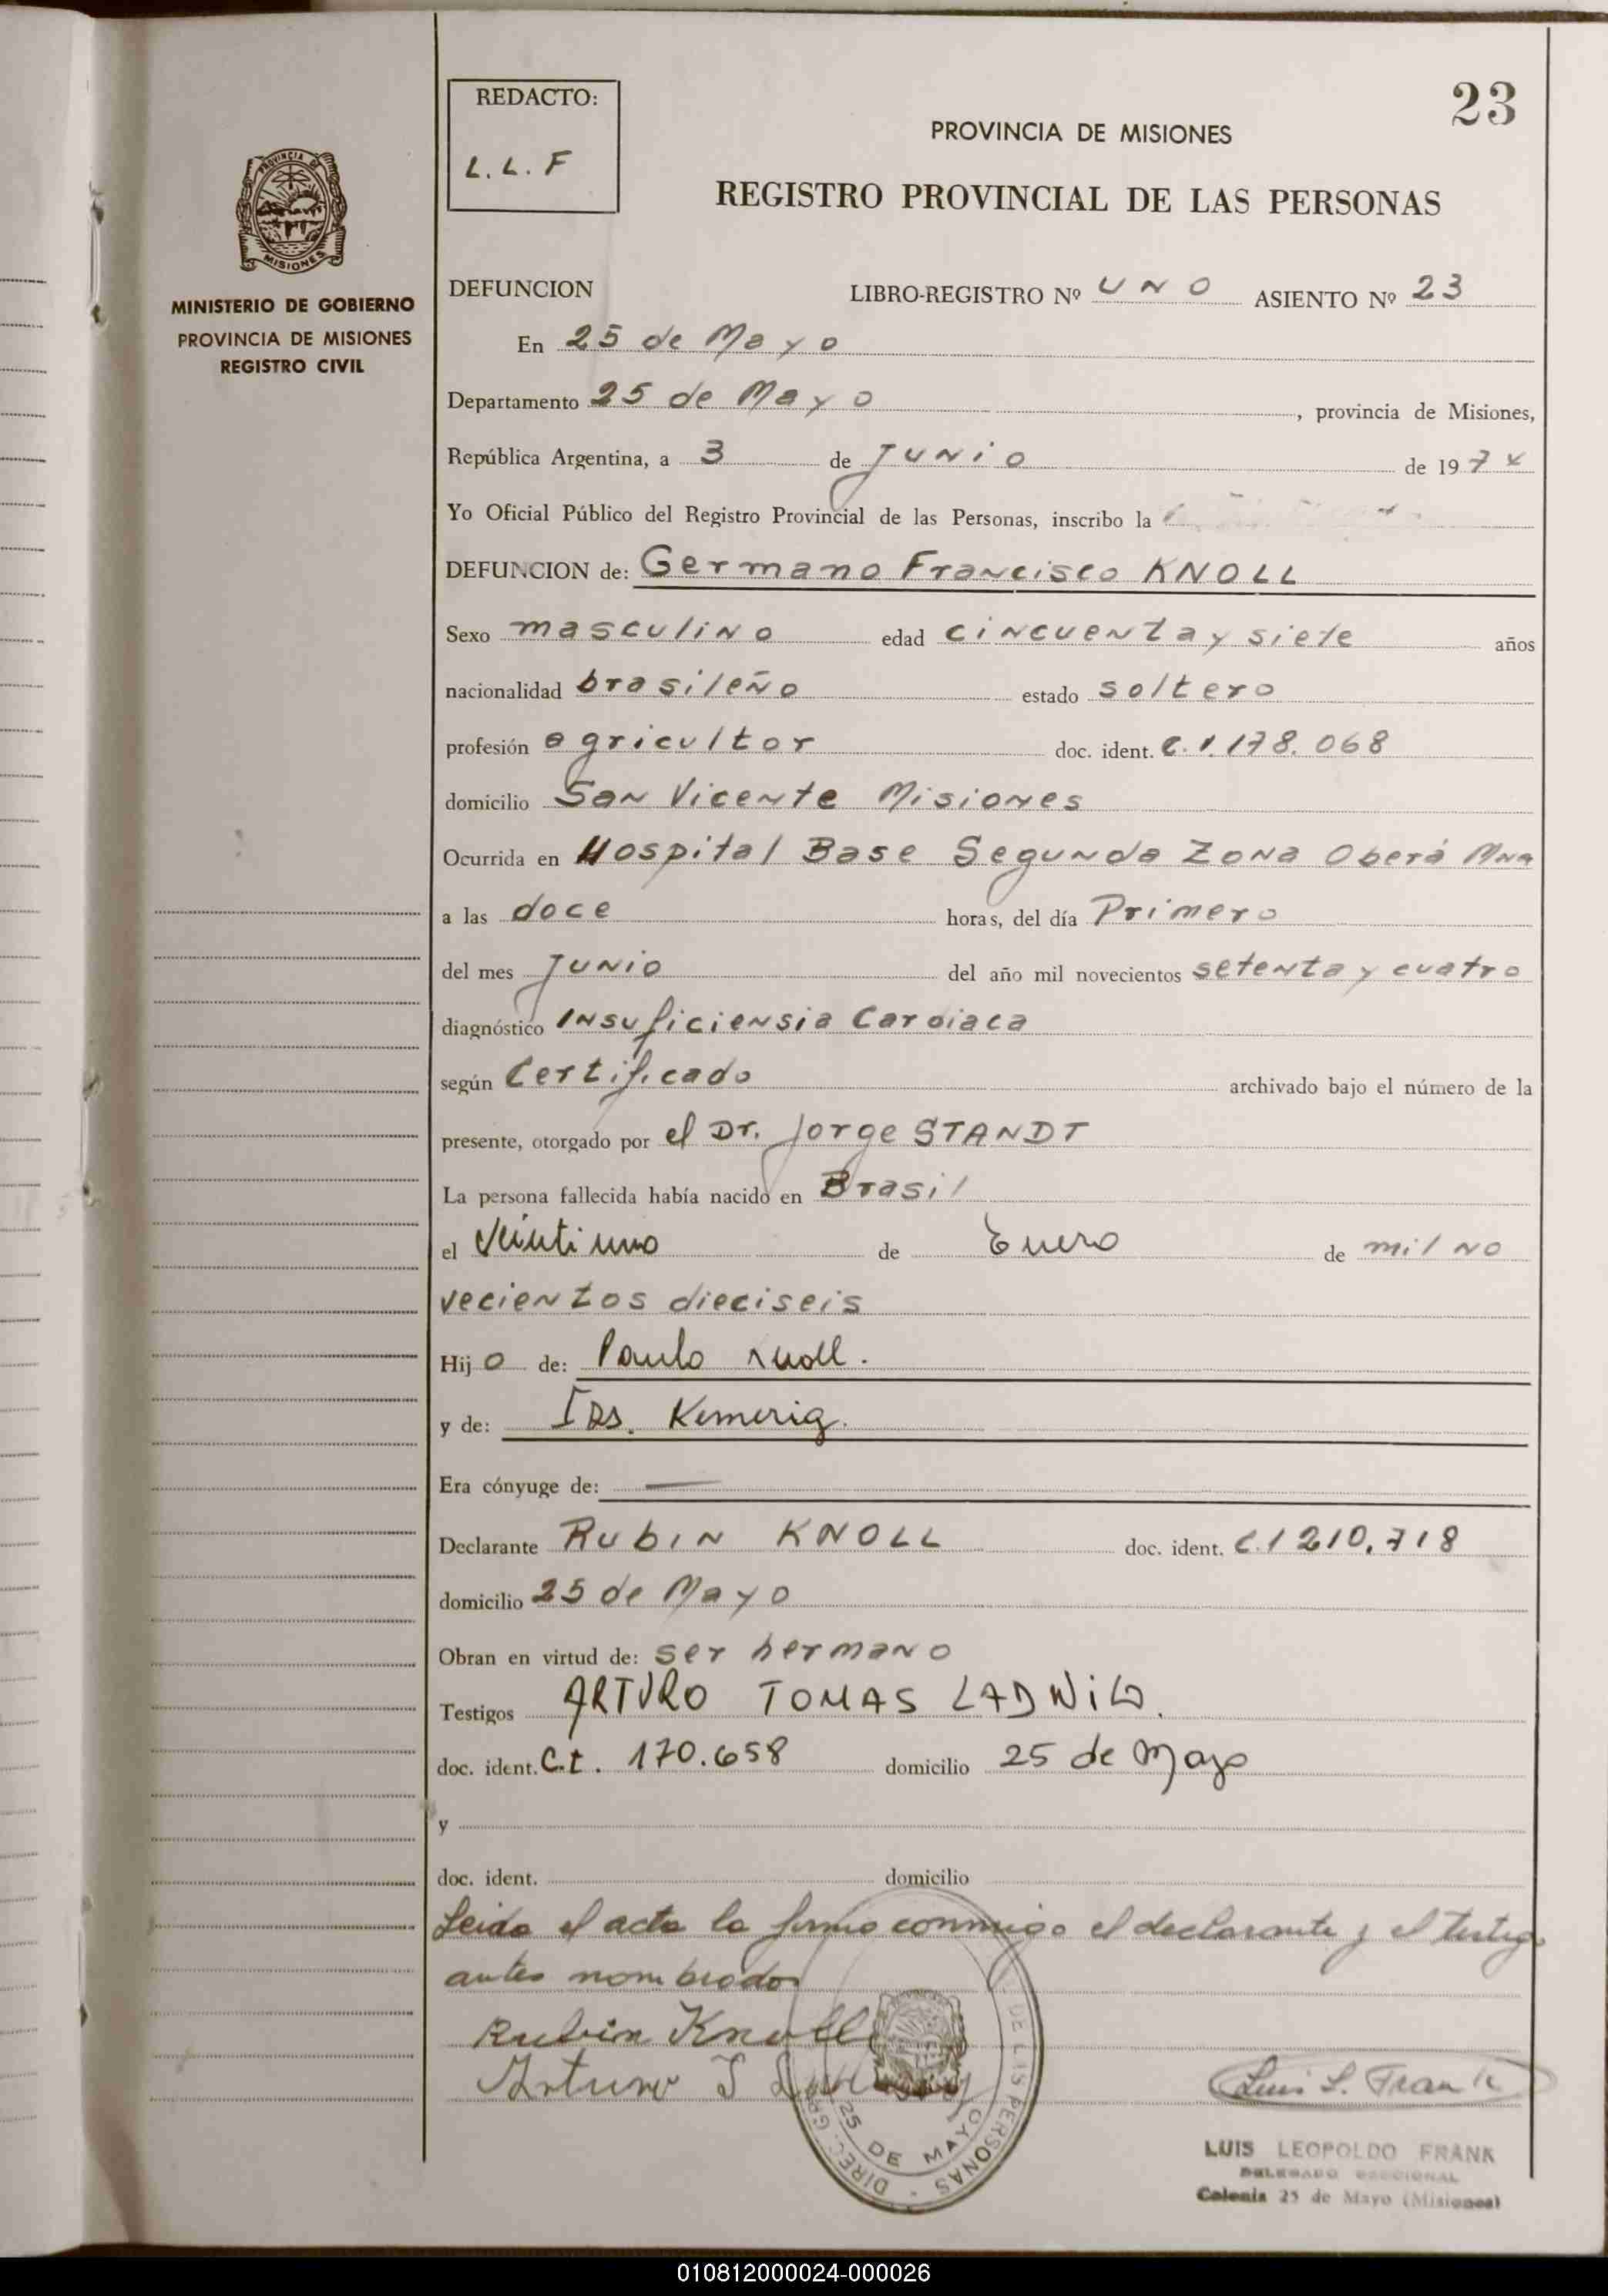 23
REDACTO:
L. L. F
PROVINCIA DE MISIONES
REGISTRO PROVINCIAL DE LAS PERSONAS
PROVINCIA DE
MISIONES
MINISTERIO DE GOBIERNO
PROVINCIA DE MISIONES
REGISTRO CIVIL
DEFUNCION LIBRO-REGISTRO Nº UNO ASIENTO Nº 23
En 25 de Mayo
Departamento 25 de Mayo, provincia de Misiones,
República Argentina, a 3 de Junio de 1974
Yo Oficial Público del Registro Provincial de las Personas, inscribo la
DEFUNCION de: Germano Francisco KNOLL
Sexo masculino edad cincuenta y siete años
nacionalidad brasileño estado soltero
profesión agricultor doc. ident. C.I.178.068
domicilio San Vicente Misiones
Ocurrida en Hospital Base Segunda Zona Oberá Mna
a las doce horas, del día Primero
del mes Junio del año mil novecientos setenta y cuatro
diagnóstico Insuficiensia Cardiaca
según Certificado archivado bajo el número de la
presente, otorgado por el Dr. Jorge STANDT
La persona fallecida había nacido en Brasil
el Veintiuno de Enero de mil no
vecientos dieciseis
Hijo de: Paulo Knoll.
y de: Kemerig.
Era cónyuge de: —
Declarante RUBIN KNOLL doc. ident. C.I 210.718
domicilio 25 de Mayo
Obran en virtud de: ser hermano
Testigos ARTURO TOMAS LADWIG.
doc. ident. C.I. 170.658 domicilio 25 de Mayo
y
doc. ident. domicilio
Leida el acta la firma conmigo el declarante y el testigo
antes nombrados
Rubin Knoll
Arturo T
Luis L. Frank
DIREC. GRAL. DE LAS PERSONAS
25 DE MAYO
LUIS LEOPOLDO FRANK
DELEGADO SECCIONAL
Colonia 25 de Mayo (Misiones)
010812000024-000026